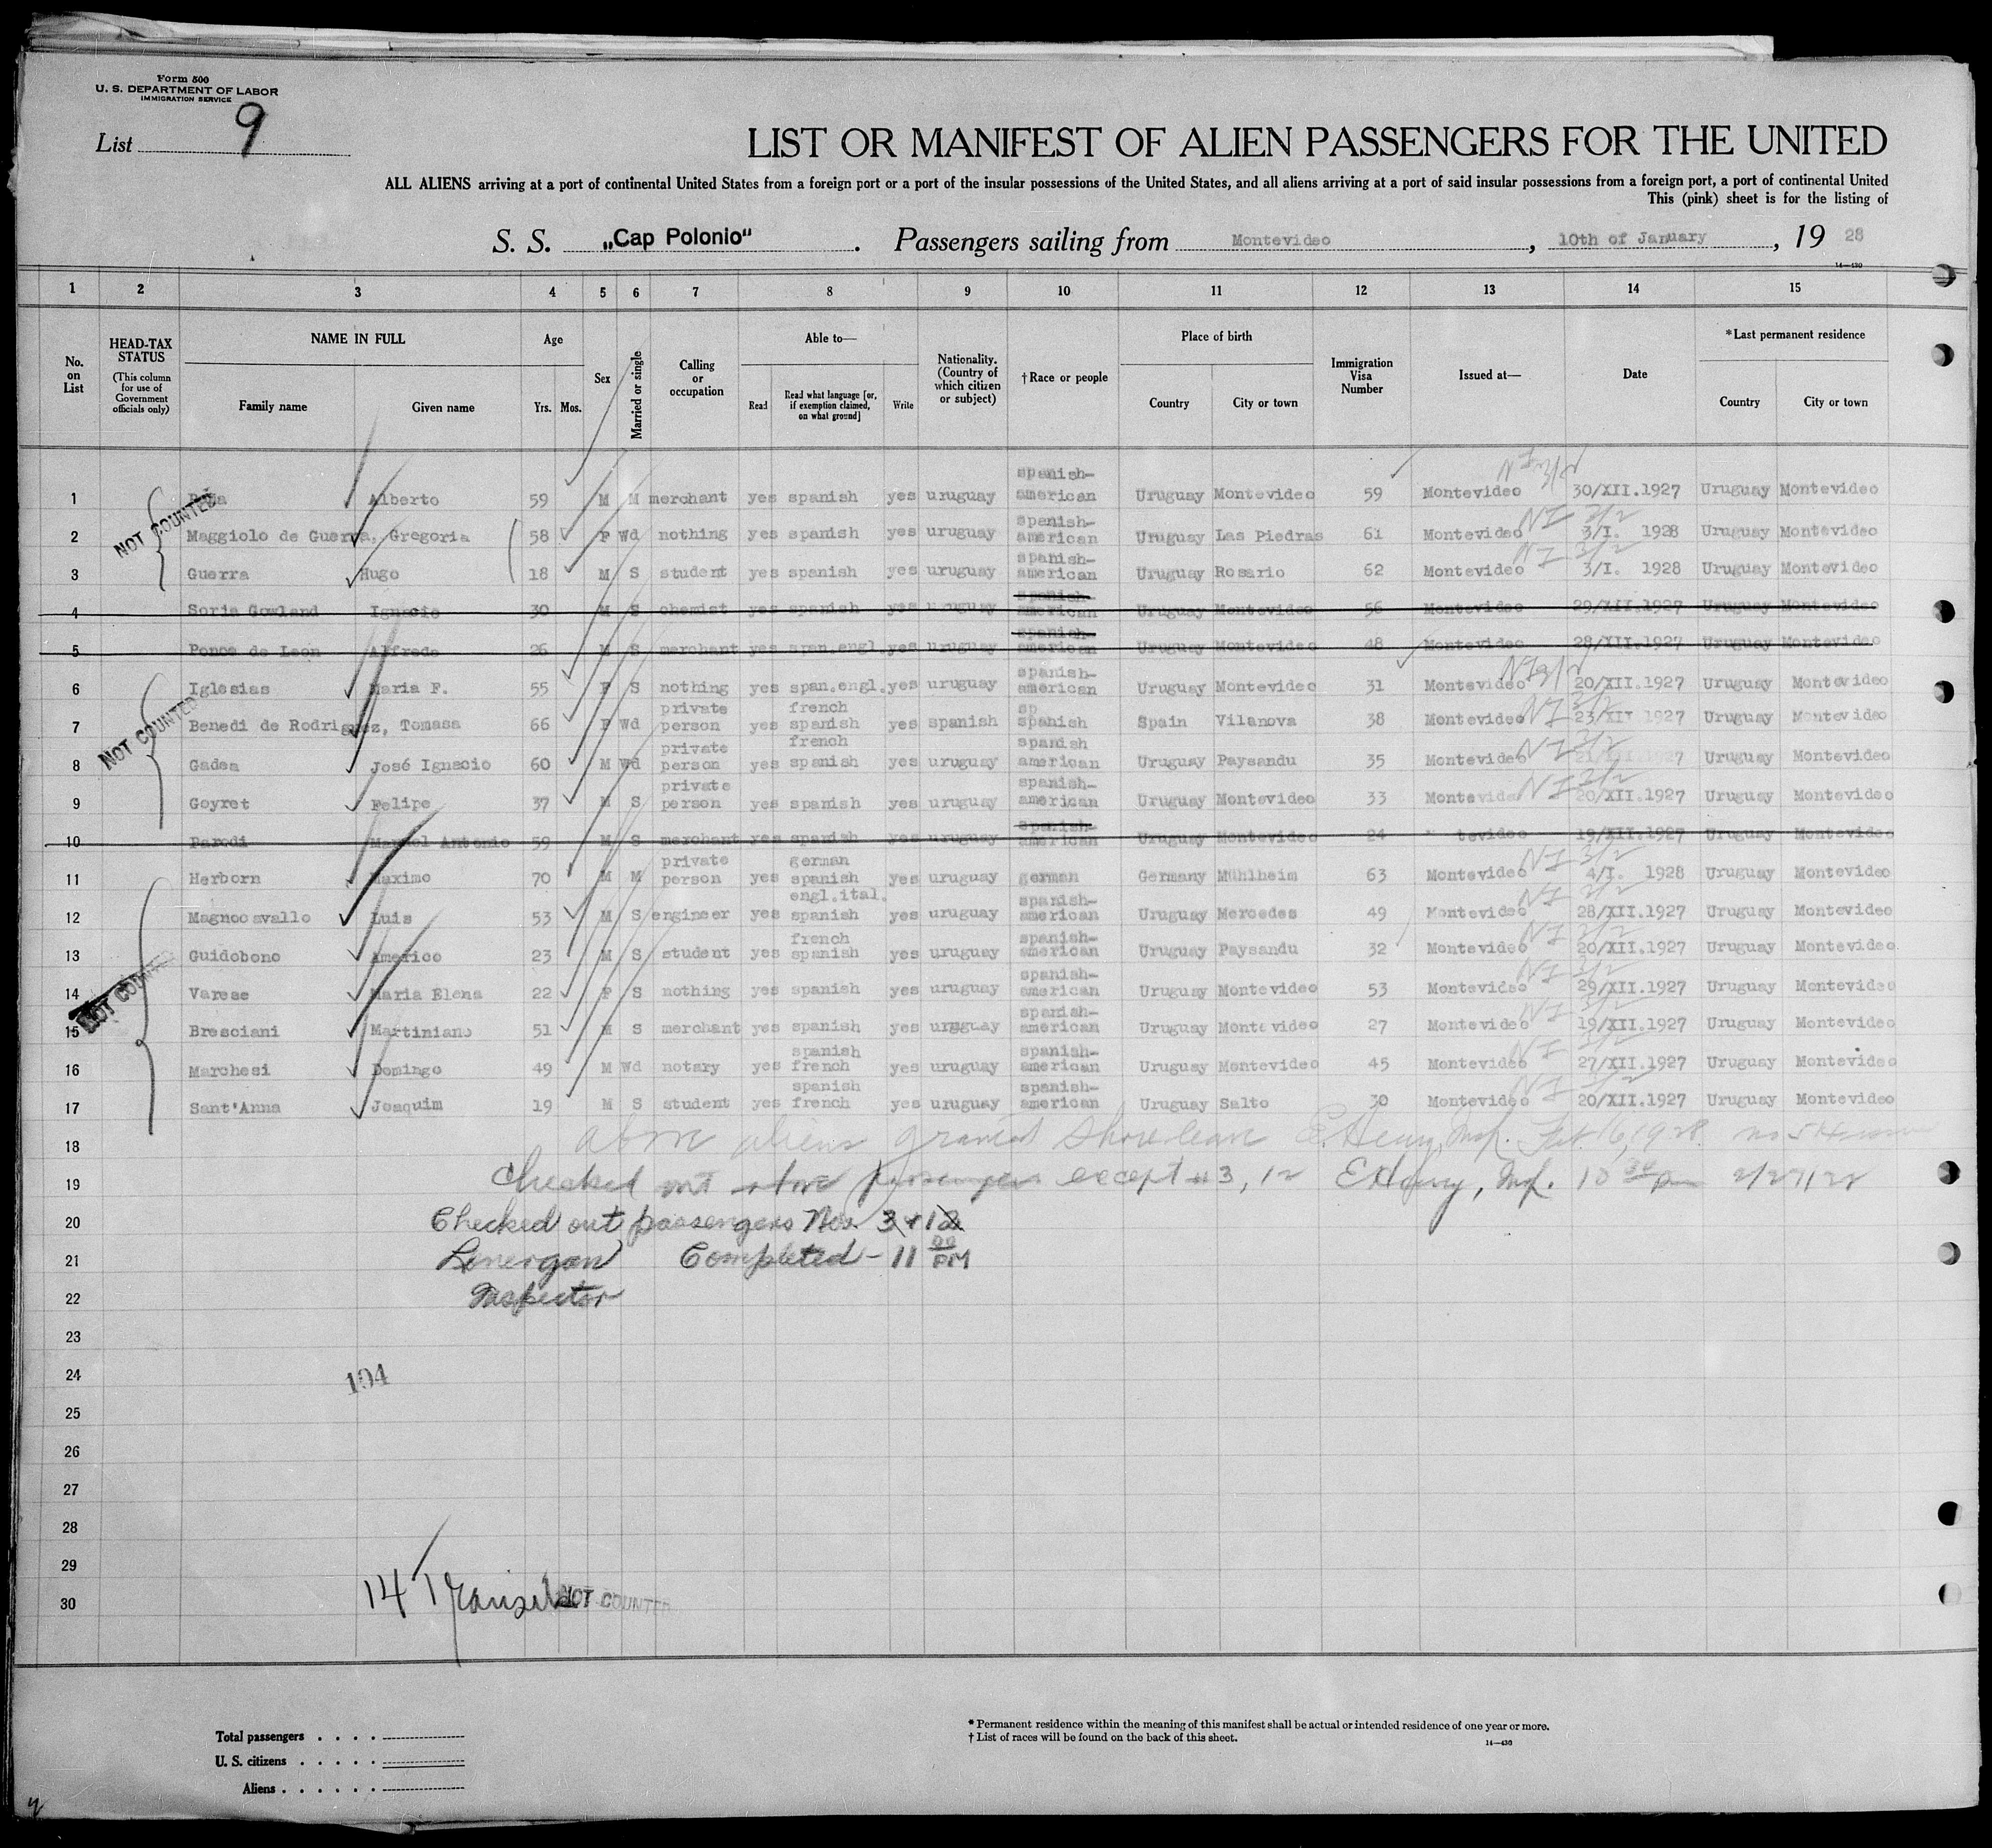 Form 500
U. S. DEPARTMENT OF LABOR
IMMIGRATION SERVICE
List 9
LIST OR MANIFEST OF ALIEN PASSENGERS FOR THE UNITED
ALL ALIENS arriving at a port of continental United States from a foreign port or a port of the insular possessions of the United States, and all aliens arriving at a port of said insular possessions from a foreign port, a port of continental United
This (pink) sheet is for the listing of
S. S. „Cap Polonio“. Passengers sailing from Montevideo, 10th of January, 19 28
14—430
1 2 3 4 5 6 7 8 9 10 11 12 13 14 15
No. on List
HEAD-TAX STATUS (This column for use of Government officials only)
NAME IN FULL Family name Given name
Age Yrs. Mos.
Sex
Married or single
Calling or occupation
Able to— Read Read what language [or, if exemption claimed, on what ground] Write
Nationality. (Country of which citizen or subject)
†Race or people
Place of birth Country City or town
Immigration Visa Number
Issued at—
Date
*Last permanent residence Country City or town
1 Alberto 59 M M merchant yes spanish yes uruguay spanish-american Uruguay Montevideo 59 Montevideo 30/XII.1927 Uruguay Montevideo
2 Maggiolo de Guerra, Gregoria 58 F Wd nothing yes spanish yes uruguay spanish-american Uruguay Las Piedras 61 Montevideo 3/I. 1928 Uruguay Montevideo
3 Guerra Hugo 18 M S student yes spanish yes uruguay spanish-american Uruguay Rosario 62 Montevideo 3/I. 1928 Uruguay Montevideo
4 Soria Gowland Ignacio 30 M S chemist yes spanish yes uruguay spanish-american Uruguay Montevideo 56 Montevideo 29/XII.1927 Uruguay Montevideo
5 Ponce de Leon Alfredo 26 M S merchant yes span.engl. yes uruguay spanish-american Uruguay Montevideo 48 Montevideo 28/XII.1927 Uruguay Montevideo
6 Iglesias Maria F. 55 F S nothing yes span.engl. yes uruguay spanish-american Uruguay Montevideo 31 Montevideo 20/XII.1927 Uruguay Montevideo
7 Benedi de Rodriguez, Tomasa 66 F Wd private person yes french spanish yes spanish sp spanish Spain Vilanova 38 Montevideo 23/XII 1927 Uruguay Montevideo
8 Gadea José Ignacio 60 M Wd private person yes french spanish yes uruguay spanish american Uruguay Paysandu 35 Montevideo 21/XII.1927 Uruguay Montevideo
9 Goyret Felipe 37 M S private person yes spanish yes uruguay spanish-american Uruguay Montevideo 33 Montevideo 20/XII.1927 Uruguay Montevideo
10 Parodi Manuel Antonio 59 M S merchant yes spanish yes uruguay spanish-american Uruguay Montevideo 24 tevideo 19/XII.1927 Uruguay Montevideo
11 Herborn Maximo 70 M M private person yes german spanish yes uruguay german Germany Mühlheim 63 Montevideo 4/I. 1928 Uruguay Montevideo
12 Magnocavallo Luis 53 M S engineer yes engl.ital. spanish yes uruguay spanish-american Uruguay Mercedes 49 Montevideo 28/XII.1927 Uruguay Montevideo
13 Guidobono Americo 23 M S student yes french spanish yes uruguay spanish-american Uruguay Paysandu 32 Montevideo 20/XII.1927 Uruguay Montevideo
14 Varese Maria Elena 22 F S nothing yes spanish yes uruguay spanish-american Uruguay Montevideo 53 Montevideo 29/XII.1927 Uruguay Montevideo
15 Bresciani Martiniano 51 M S merchant yes spanish yes uruguay spanish-american Uruguay Montevideo 27 Montevideo 19/XII.1927 Uruguay Montevideo
16 Marchesi Domingo 49 M Wd notary yes spanish french yes uruguay spanish-american Uruguay Montevideo 45 Montevideo 27/XII.1927 Uruguay Montevideo
17 Sant'Anna Joaquim 19 M S student yes spanish french yes uruguay spanish-american Uruguay Salto 30 Montevideo 20/XII.1927 Uruguay Montevideo
NOT COUNTED
NOT COUNTED
NOT COUNTED
18 above aliens granted shore leave E. Henry, Insp. Feb 16, 1928
19 Checked out above passengers except #3, 12 E Henry, Insp. 10 30 pm 2/27/28
20 Checked out passengers Nos. 3 + 12
21 Lonergan Completed - 11 00 PM
22 Inspector
23
24 104
25
26
27
28
29
30 14 Transit NOT COUNTED
Total passengers
U. S. citizens
Aliens
* Permanent residence within the meaning of this manifest shall be actual or intended residence of one year or more.
† List of races will be found on the back of this sheet.
14—430